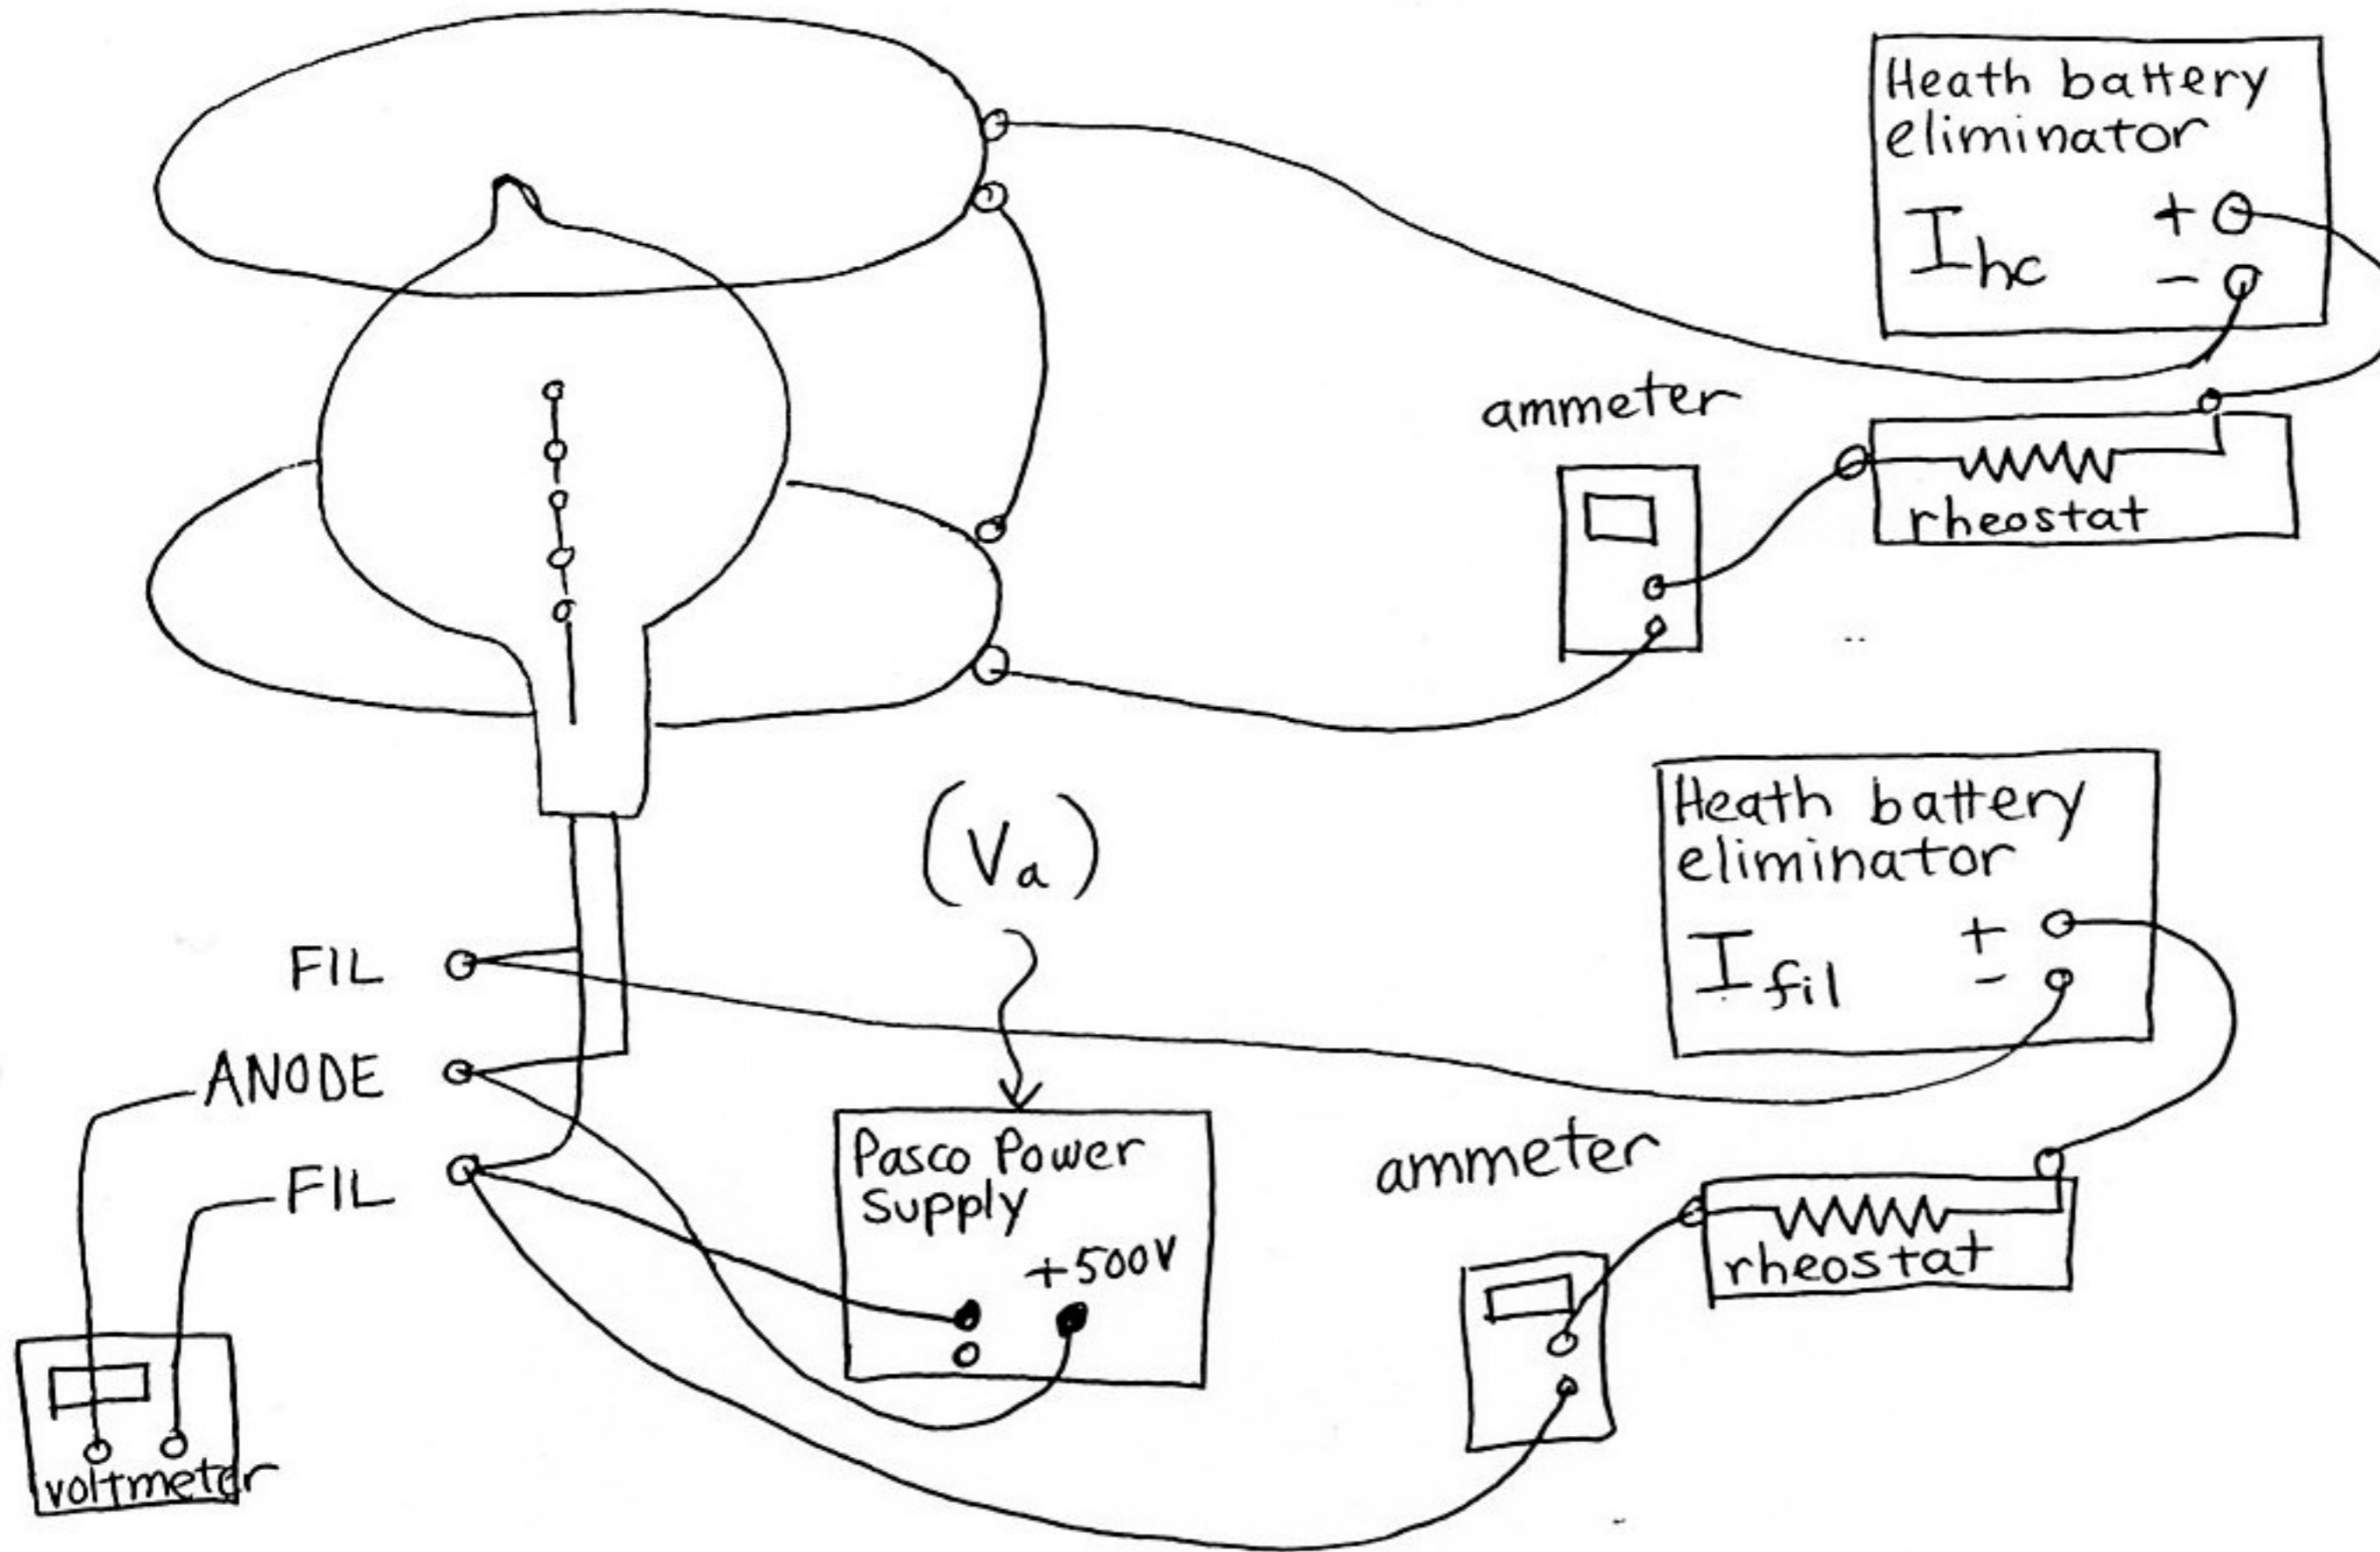 Heath battery
eliminator
I hc
+
-
ammeter
rheostat
(Va)
Heath battery
eliminator
I fil
+
-
FIL
ANODE
FIL
Pasco Power
Supply
+500V
ammeter
rheostat
voltmeter